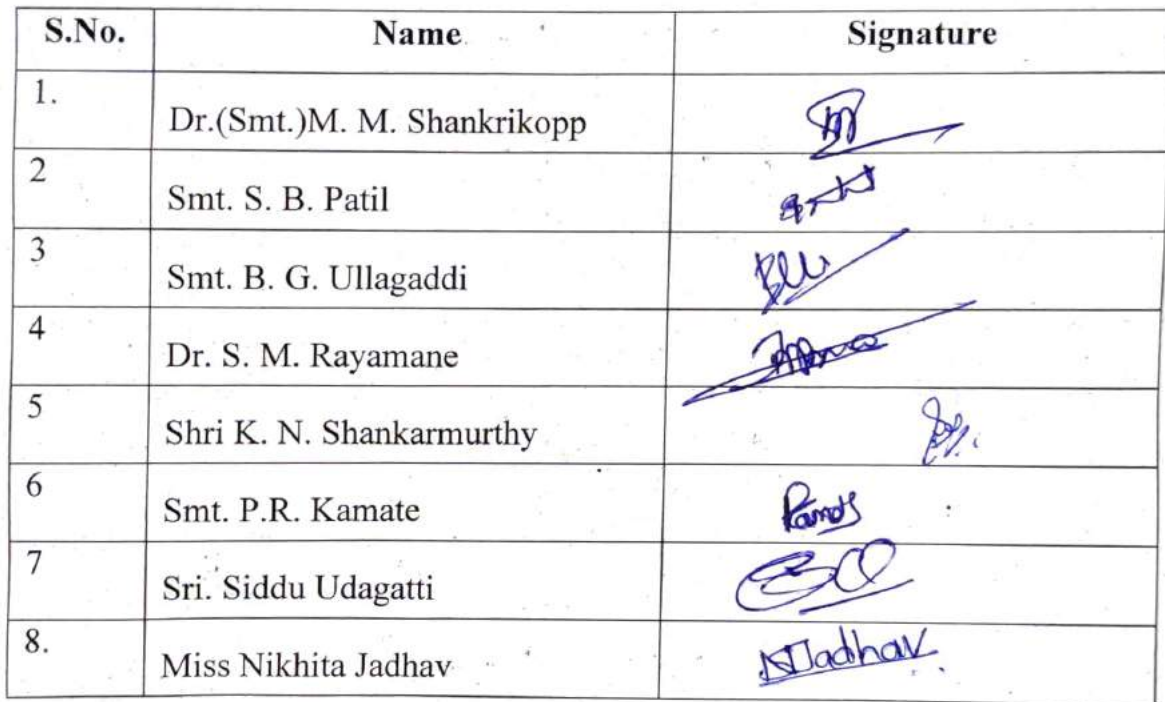 S.No. Name Signature
1. Dr.(Smt.)M. M. Shankrikopp
2 Smt. S. B. Patil
3 Smt. B. G. Ullagaddi
4 Dr. S. M. Rayamane
5 Shri K. N. Shankarmurthy
6 Smt. P.R. Kamate
7 Sri. Siddu Udagatti
8. Miss Nikhita Jadhav NJadhav